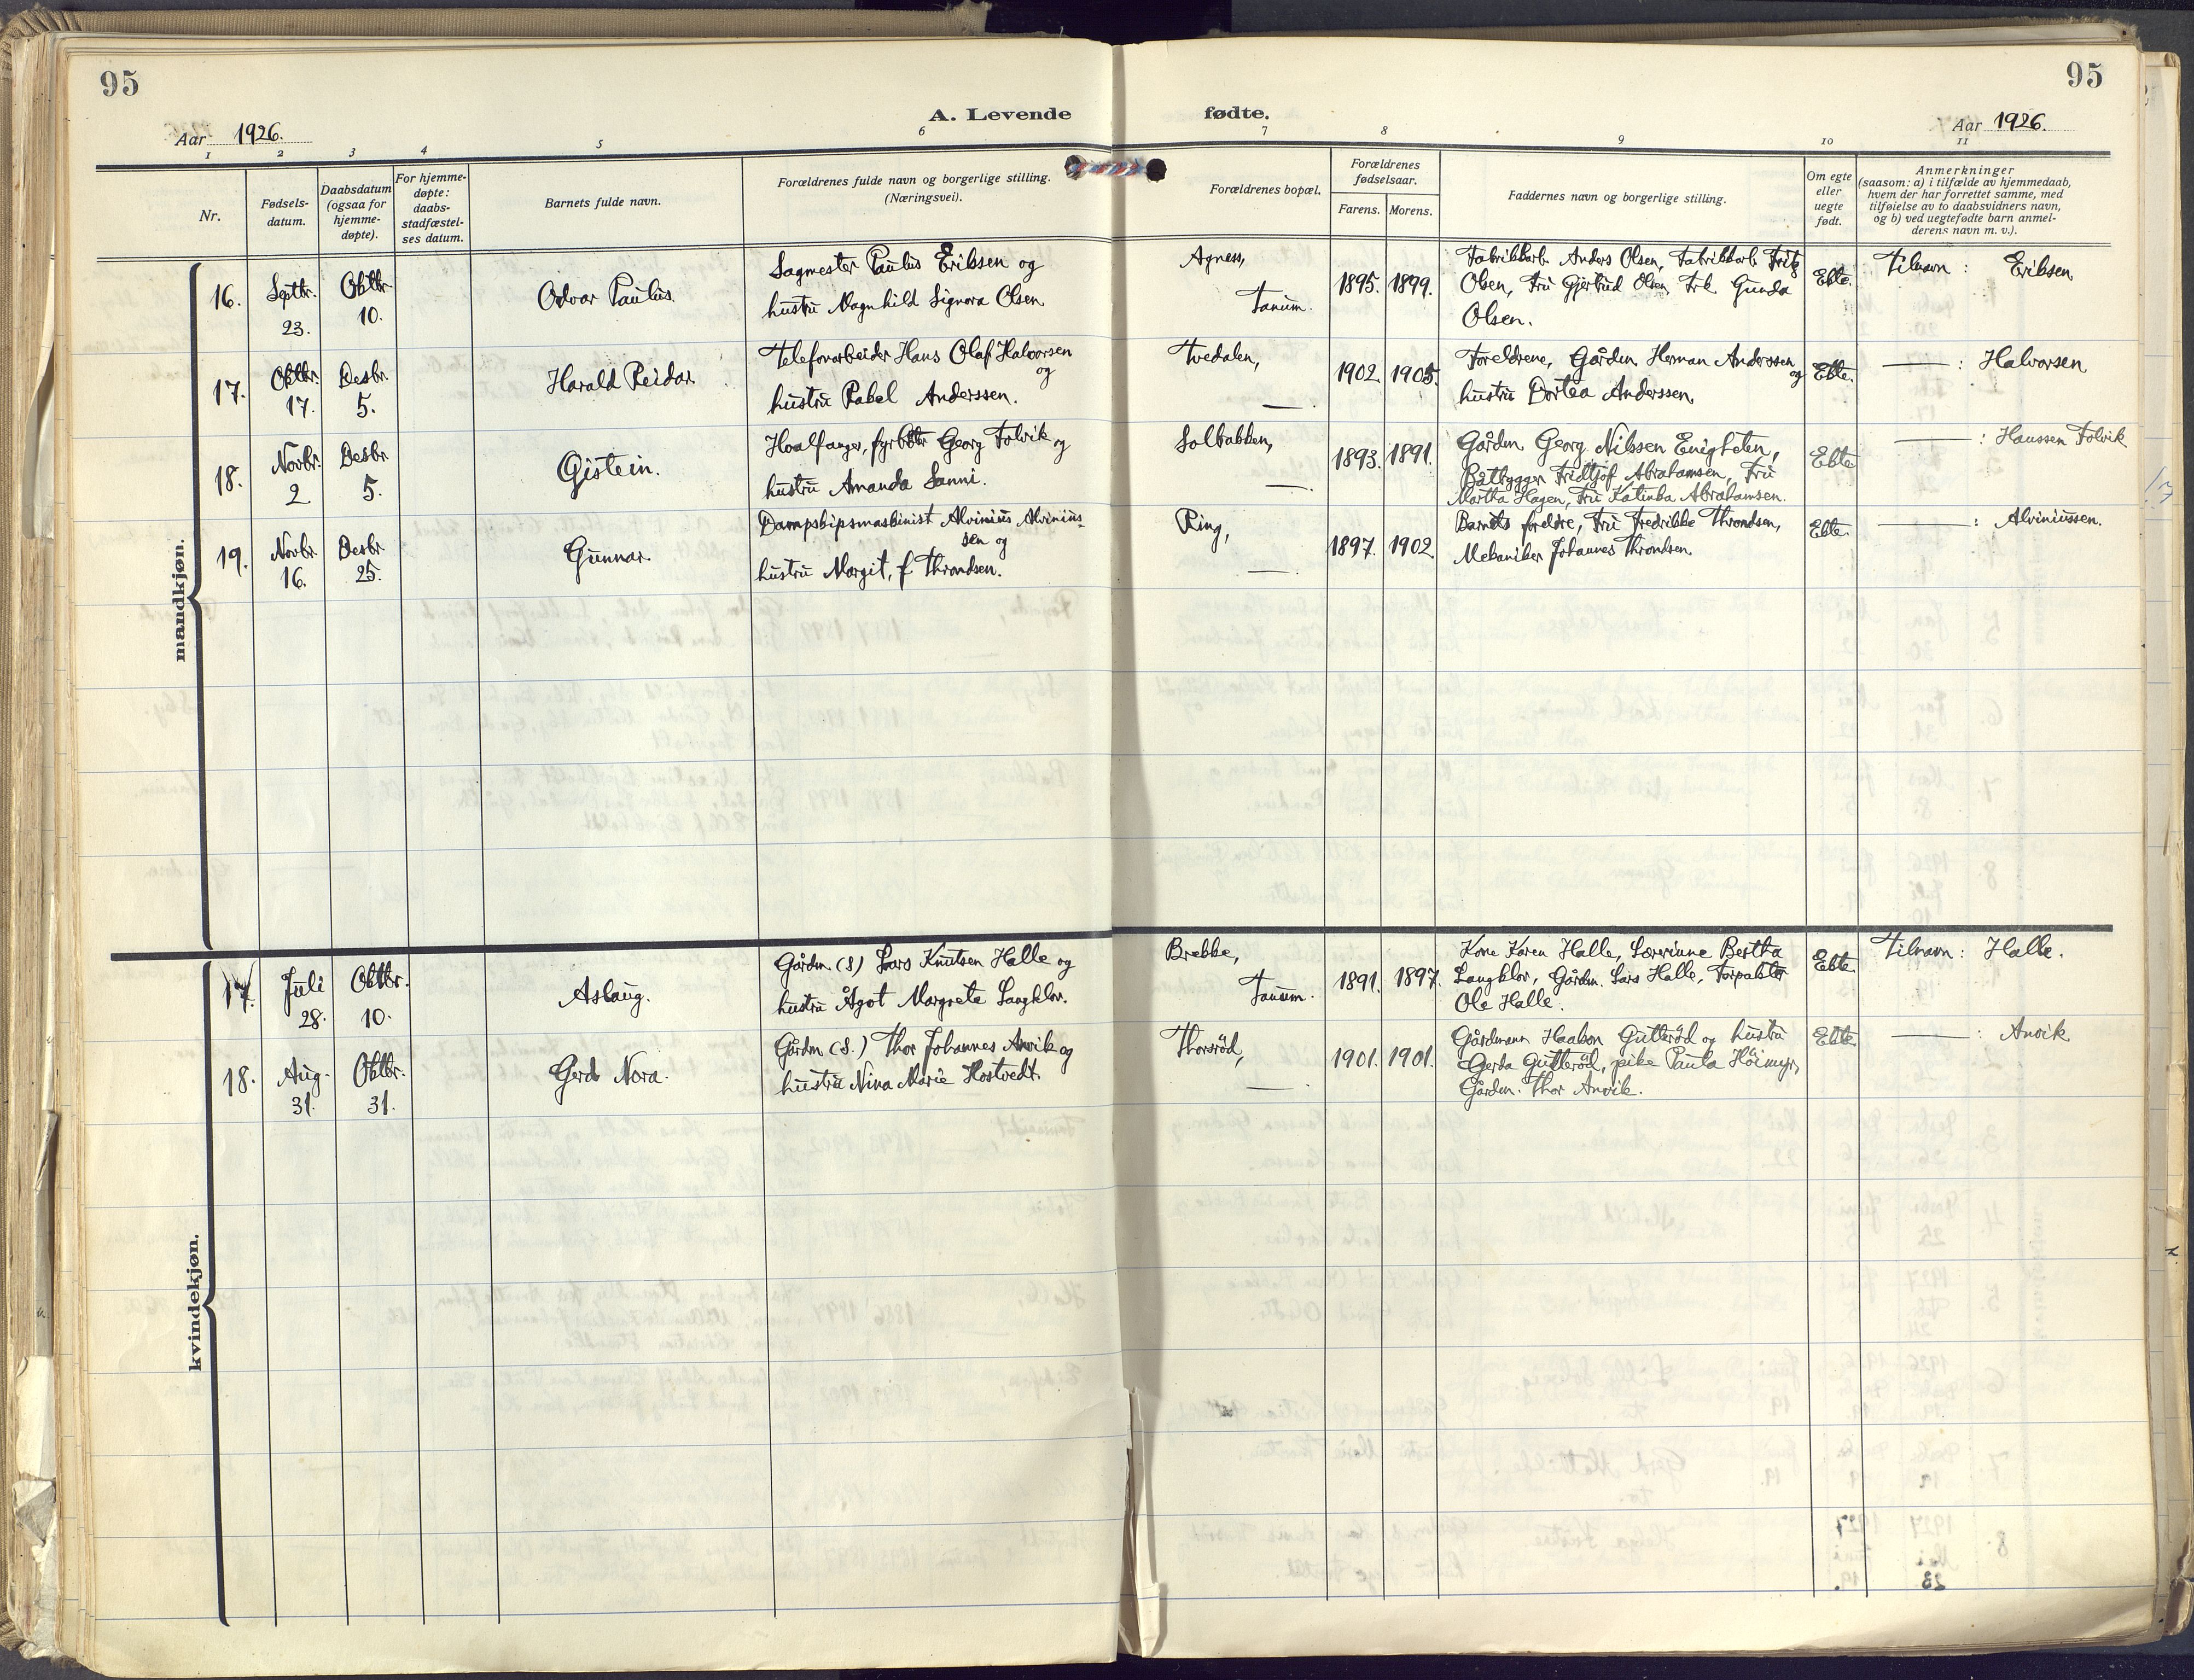 95
95
A. Levende fødte.
Aar 1926.
Aar 1926.
1 2 3 4 5 6 7 8 9 10 11
Nr.
Fødsels-
datum.
Daabsdatum
(ogsaa for
hjemme-
døpte).
For hjemme-
døpte:
daabs-
stadfæstel-
ses datum.
Barnets fulde navn.
Forældrenes fulde navn og borgerlige stilling.
(Næringsvei).
Forældrenes bopæl.
Forældrenes
fødselsaar.
Farens. Morens.
Faddernes navn og borgerlige stilling.
Om egte
eller
uegte
født.
Anmerkninger
(saasom: a) i tilfælde av hjemmedaab,
hvem der har forrettet samme, med
tilføielse av to daabsvidners navn,
og b) ved uegtefødte barn anmel-
derens navn m. v.).
mandkjøn.
16.
Septbr.
23.
Oktbr.
10.
Odvar Paulus.
Sagmester Paulus Eriksen og
hustru Magnhild Signora Olsen.
Agness,
Tanum.
1895. 1899.
Fabrikkarb. Anders Olsen, Fabrikkarb. Fritz
Olsen, Fru Gjertrud Olsen, Frk. Gunda
Olsen.
Ekte.
Tilnavn: Eriksen.
17.
Oktbr.
17.
Desbr.
5.
Harald Reidar.
Telefonarbeider Hans Olaf Halvorsen
og
hustru Rakel Anderssen.
Tvedalen,
—
1902. 1905.
Foreldrene, Gårdm. Herman Anderssen og
hustru Dortea Anderssen.
Ekte.
— : Halvorsen.
18.
Novbr.
2.
Desbr.
5.
Gistein.
Hvalfanger, fyrbøter Georg Folvik og
hustru Amanda Sanni.
Solbakken,
—
1893. 1891.
Gårdm. Georg Nilssen Enigheten,
Båtbygger Fridtjof Abrahamsen, Fru
Martha Hagen, Fru Katinka Abrahamsen.
Ekte
— : Hanssen Folvik
19.
Novbr.
16.
Desbr.
25.
Gunnar.
Dampskipsmaskinist Alvinius Alvinius-
sen og
hustru Margit, f. Throndsen.
Ring,
—
1897. 1902.
Barnets foreldre, Fru Fredrikke Throndsen,
Mekaniker Johannes Throndsen.
Ekte.
— : Alviniussen.
kvindekjøn.
17.
Juli
28.
Oktbr.
10.
Aslaug.
Gårdm. (S) Lars Knutsen Halle og
hustru Ågot Margrete Langklov.
Brekke,
Tanum.
1891. 1897.
Kone Karen Halle, Lærerinne Bertha
Langklov, Gårdm. Lars Halle, Forpakter
Ole Halle.
Ekte
Tilnavn: Halle.
18.
Aug.
31.
Oktbr.
31.
Gerd Nora.
Gårdm (S.) Thor Johannes Anvik og
hustru Nina Marie Hostvedt.
Thorsrød,
—
1901. 1901.
Gårdmann Haakon Gutterød og hustru
Gerda Gutterød, pike Paula Höimyr,
Gårdm. Thor Anvik.
Ekte
— : Anvik